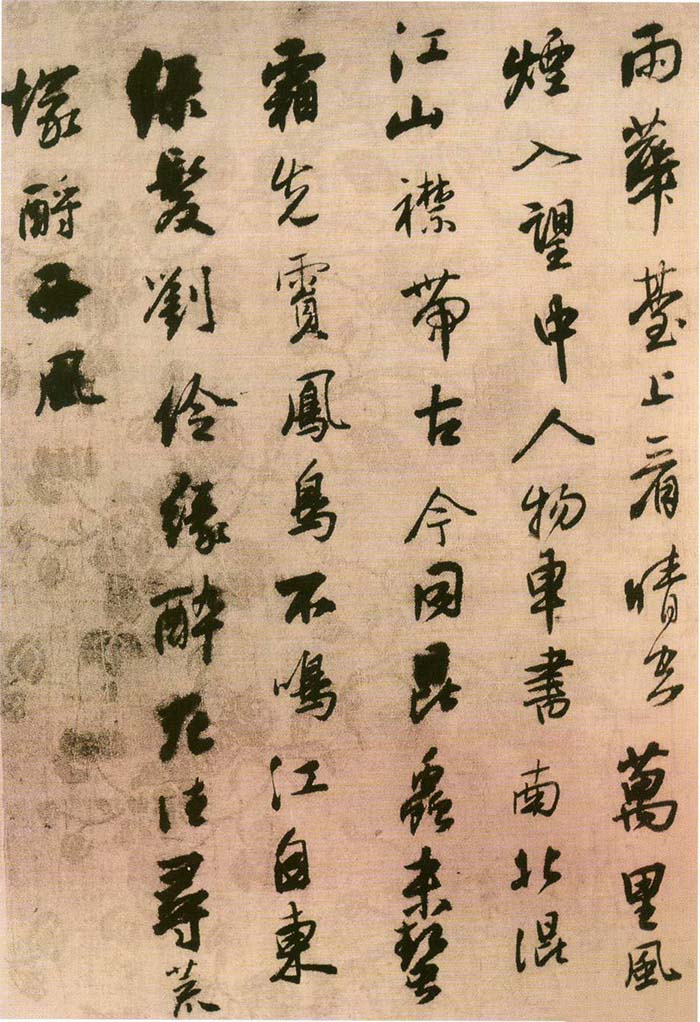 雨華臺上看晴空萬里風
煙入望中人物車書南北混
江山襟帶古今同昆蟲未蟄
霜先霣鳳鳥不鳴江自東
綠髮劉伶緣醉死往尋荒
塚酹西風